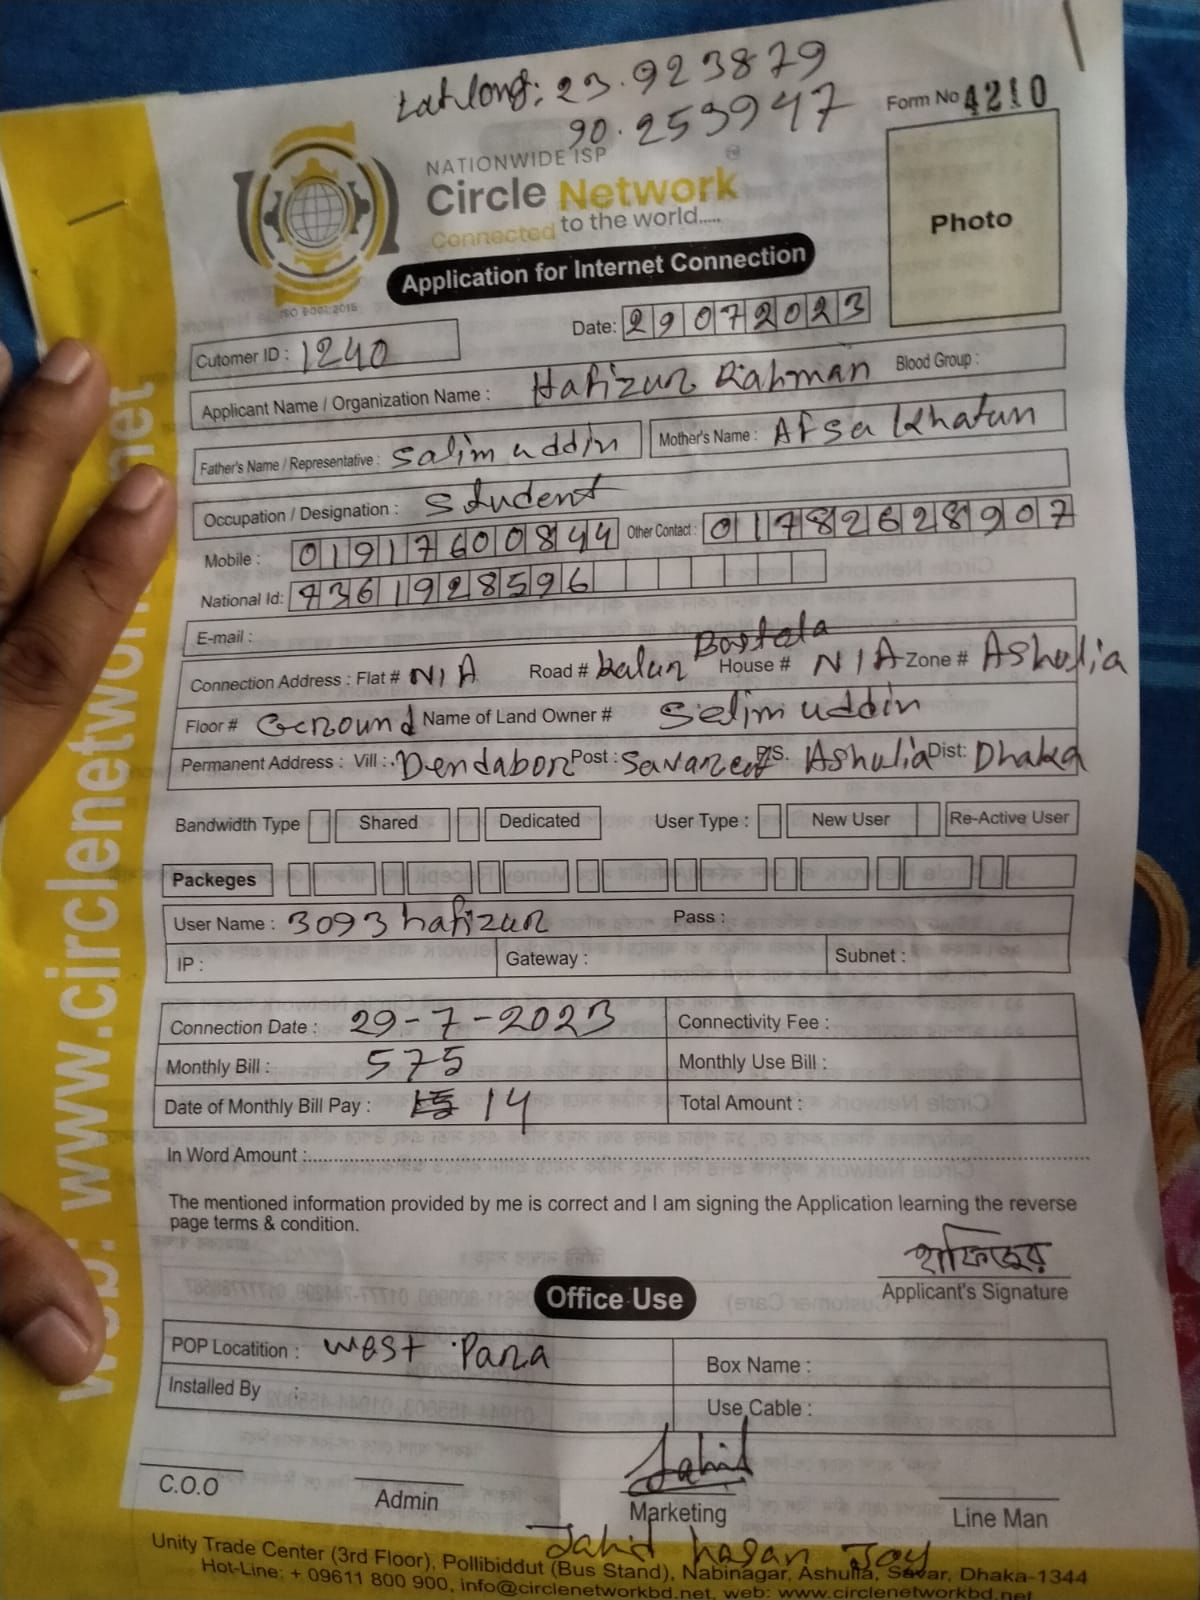 Lat long: 23.923879
90.253947
Form No 4210
NATIONWIDE ISP
Circle Network
Connected to the world.....
ISO 9001:2015
Application for Internet Connection
Photo
Date: 29072023
Cutomer ID : 1240
Applicant Name / Organization Name : Hafizur Rahman Blood Group :
Father's Name / Representative : Salim uddin Mother's Name : Afsa Khatun
Occupation / Designation : Student
Mobile : 01917600844 Other Contact : 01782628907
National Id: 7361928596
E-mail :
Connection Address : Flat # N/A Road # kalur Bastola House # N/A Zone # Ashulia
Floor # Ground Name of Land Owner # Selim uddin
Permanent Address : Vill : Dendabor Post : P.S. Ashulia Dist: Dhaka
Bandwidth Type Shared Dedicated User Type : New User Re-Active User
Packeges
User Name : 3093hafizur Pass :
IP : Gateway : Subnet :
Connection Date : 29-7-2023 Connectivity Fee :
Monthly Bill : 575 Monthly Use Bill :
Date of Monthly Bill Pay : 14 Total Amount :
In Word Amount :
The mentioned information provided by me is correct and I am signing the Application learning the reverse
page terms & condition.
হাফিজুর
Applicant's Signature
Office Use
POP Locatition : West Para Box Name :
Installed By : Use Cable :
Jahid
C.O.O Admin Marketing Line Man
Jahid hasan Joy
Unity Trade Center (3rd Floor), Pollibiddut (Bus Stand), Nabinagar, Ashulia, Savar, Dhaka-1344
Hot-Line: + 09611 800 900, info@circlenetworkbd.net, web: www.circlenetworkbd.net
web: www.circlenetwork net